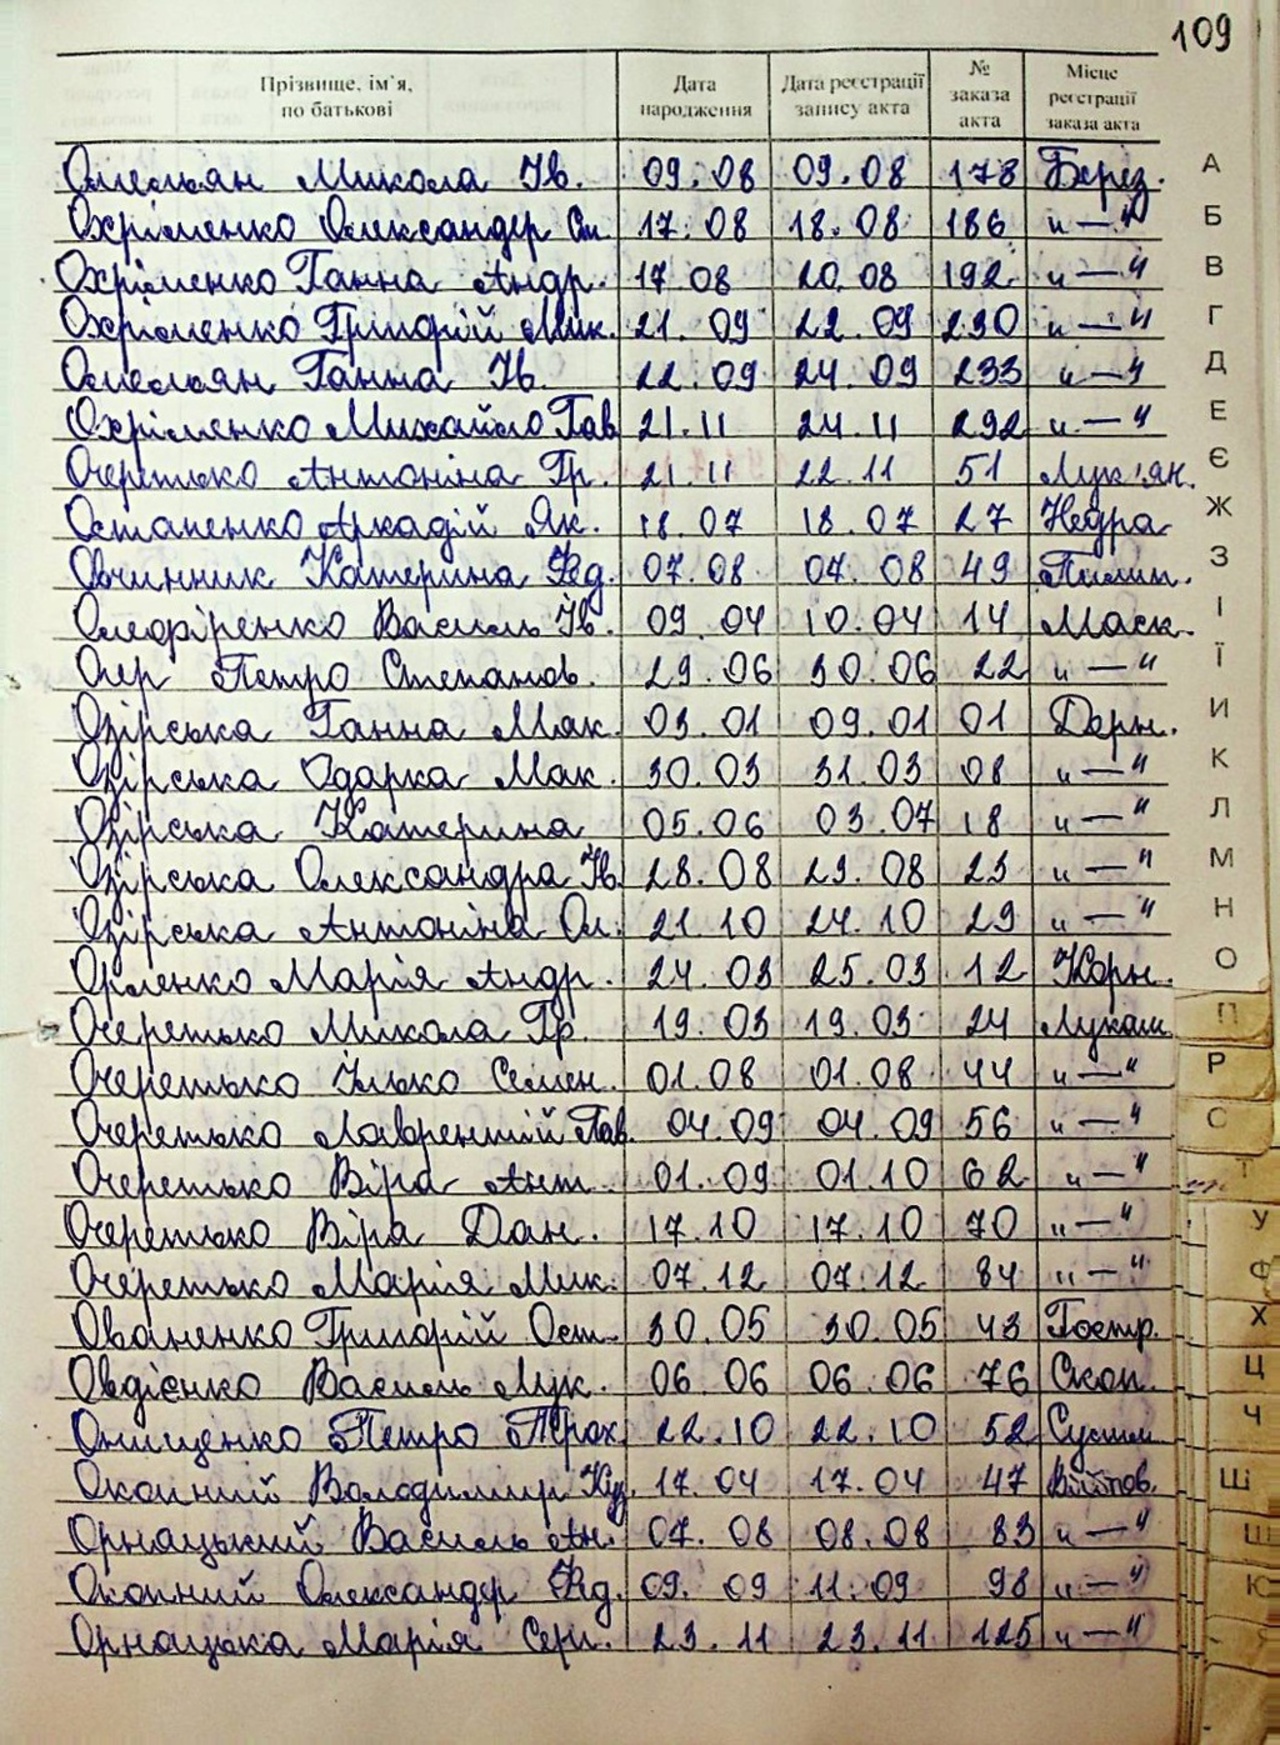 109
Прізвище, ім`я, по батькові Дата народження Дата реєстрації запису акта № заказа акта Місце реєстрації заказа акта
Омельян Микола Ів. 09.08 09.08 178 Берез.
Охріменко Олександр См. 17.08 18.08 186 "—"
Охріменко Ганна Андр. 17.08 20.08 192 "—"
Охріменко Григорій Мик. 21.09 22.09 230 "—"
Омельян Ганна Ів. 22.09 24.09 233 "—"
Охріменко Михайло Гав 21.11 24.11 292 "—"
Очеретько Антоніна Гр. 21.11 22.11 51 Лук'ян.
Остапенко Аркадій Як. 18.07 18.07 27 Недра
Овчинник Катерина Фед. 07.08 07.08 49 Пилип.
Олефіренко Василь Ів. 09.04 10.04 14 Маск.
Очер Петро Степанов. 29.06 30.06 22 "—"
Озірська Ганна Мак. 03.01 09.01 01 Дерн.
Озірська Одарка Мак. 30.03 31.03 08 "—"
Озірська Катерина 05.06 03.07 18 "—"
Озірська Олександра Ів. 28.08 29.08 23 "—"
Озірська Антоніна Ол. 21.10 24.10 29 "—"
Орленко Марія Андр. 24.03 25.03 12 Корн.
Очеретько Микола Гр. 19.03 19.03 24 Лукаш
Очеретько Ілько Семен. 01.08 01.08 44 "—"
Очеретько Лаврентій Пав. 04.09 04.09 56 "—"
Очеретько Віра Ант. 01.09 01.10 62 "—"
Очеретько Віра Дан. 17.10 17.10 70 "—"
Очеретько Марія Мик. 07.12 07.12 84 "—"
Ованенко Григорій Ост. 30.05 30.05 43 Гостр.
Овдієнко Василь Лук. 06.06 06.06 76 Скоп.
Онищенко Петро Прох. 22.10 22.10 52 Сулим
Окопний Володимир Куз. 17.04 17.04 47 Війтов.
Орнацький Василь Ан. 07.08 08.08 83 "—"
Окопний Олександр Фед. 09.09 11.09 98 "—"
Орнацька Марія Серг. 23.11 23.11 125 "—"
А
Б
В
Г
Д
Е
Є
Ж
З
І
Ї
И
К
Л
М
Н
О
П
Р
С
Т
У
Ф
Х
Ц
Ч
Ш
Щ
Ю